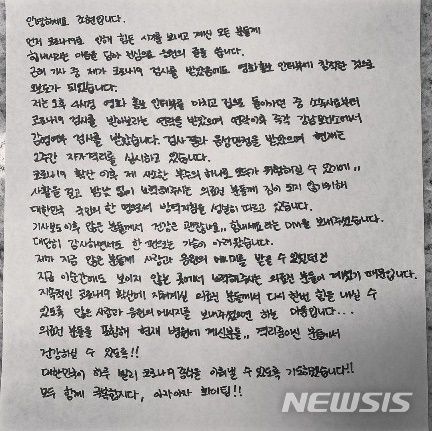 안녕하세요 조현입니다.
먼저 코로나19로 인해 힘든 시기를 보내고 계신 모든 분들께
힘내시라는 마음을 담아 진심으로 응원의 글을 씁니다.
근래 기사 중 제가 코로나19 검사를 받았음에도 영화홍보 인터뷰에 참석한 것으로
보도가 되었습니다.
저는 오후 4시경 영화 홍보 인터뷰를 마치고 집으로 돌아가던 중 소속사로부터
코로나19 검사를 받아보라는 연락을 받았으며 연락이후 즉각 강남보건소에서
감염여부 검사를 받았습니다. 검사결과 음성판정을 받았으며 현재는
2주간 자가격리를 실시하고 있습니다.
코로나19 확산 이후 제 사소한 부주의 하나로 모두가 위험해질 수 있기에,,
사활을 걸고 밤낮 없이 노력해주시는 의료진 분들께 짐이 되지 않기위해
대한민국 국민의 한 명으로서 방역지침을 성실히 따르고 있습니다.
기사보도이후 많은 분들께서 건강은 괜찮냐,, 힘내세요 하는 DM을 보내주셨습니다.
대단히 감사하면서도 한 편으로는 가슴이 아려왔습니다.
제가 지금 많은 분들께 사랑과 응원의 메시지를 받을 수 있었던건
지금 이순간에도 보이지 않는 곳에서 노력해주시는 의료진 분들이 계셨기 때문입니다.
지속적인 코로나19 확산에 지쳐계실 의료진 분들께서 다시 한번 힘을 내실 수
있도록 많은 사랑과 응원의 메시지를 보내주셨으면 하는 마음입니다...
의료진 분들을 포함해 현재 병원에 계신분들,, 격리중이신 분들께서
건강하실 수 있도록!!
대한민국이 하루 빨리 코로나19 종식을 이뤄낼 수 있도록 기도하겠습니다!!
모두 함께 극복합시다, 아자아자 화이팅!!
NEWSIS